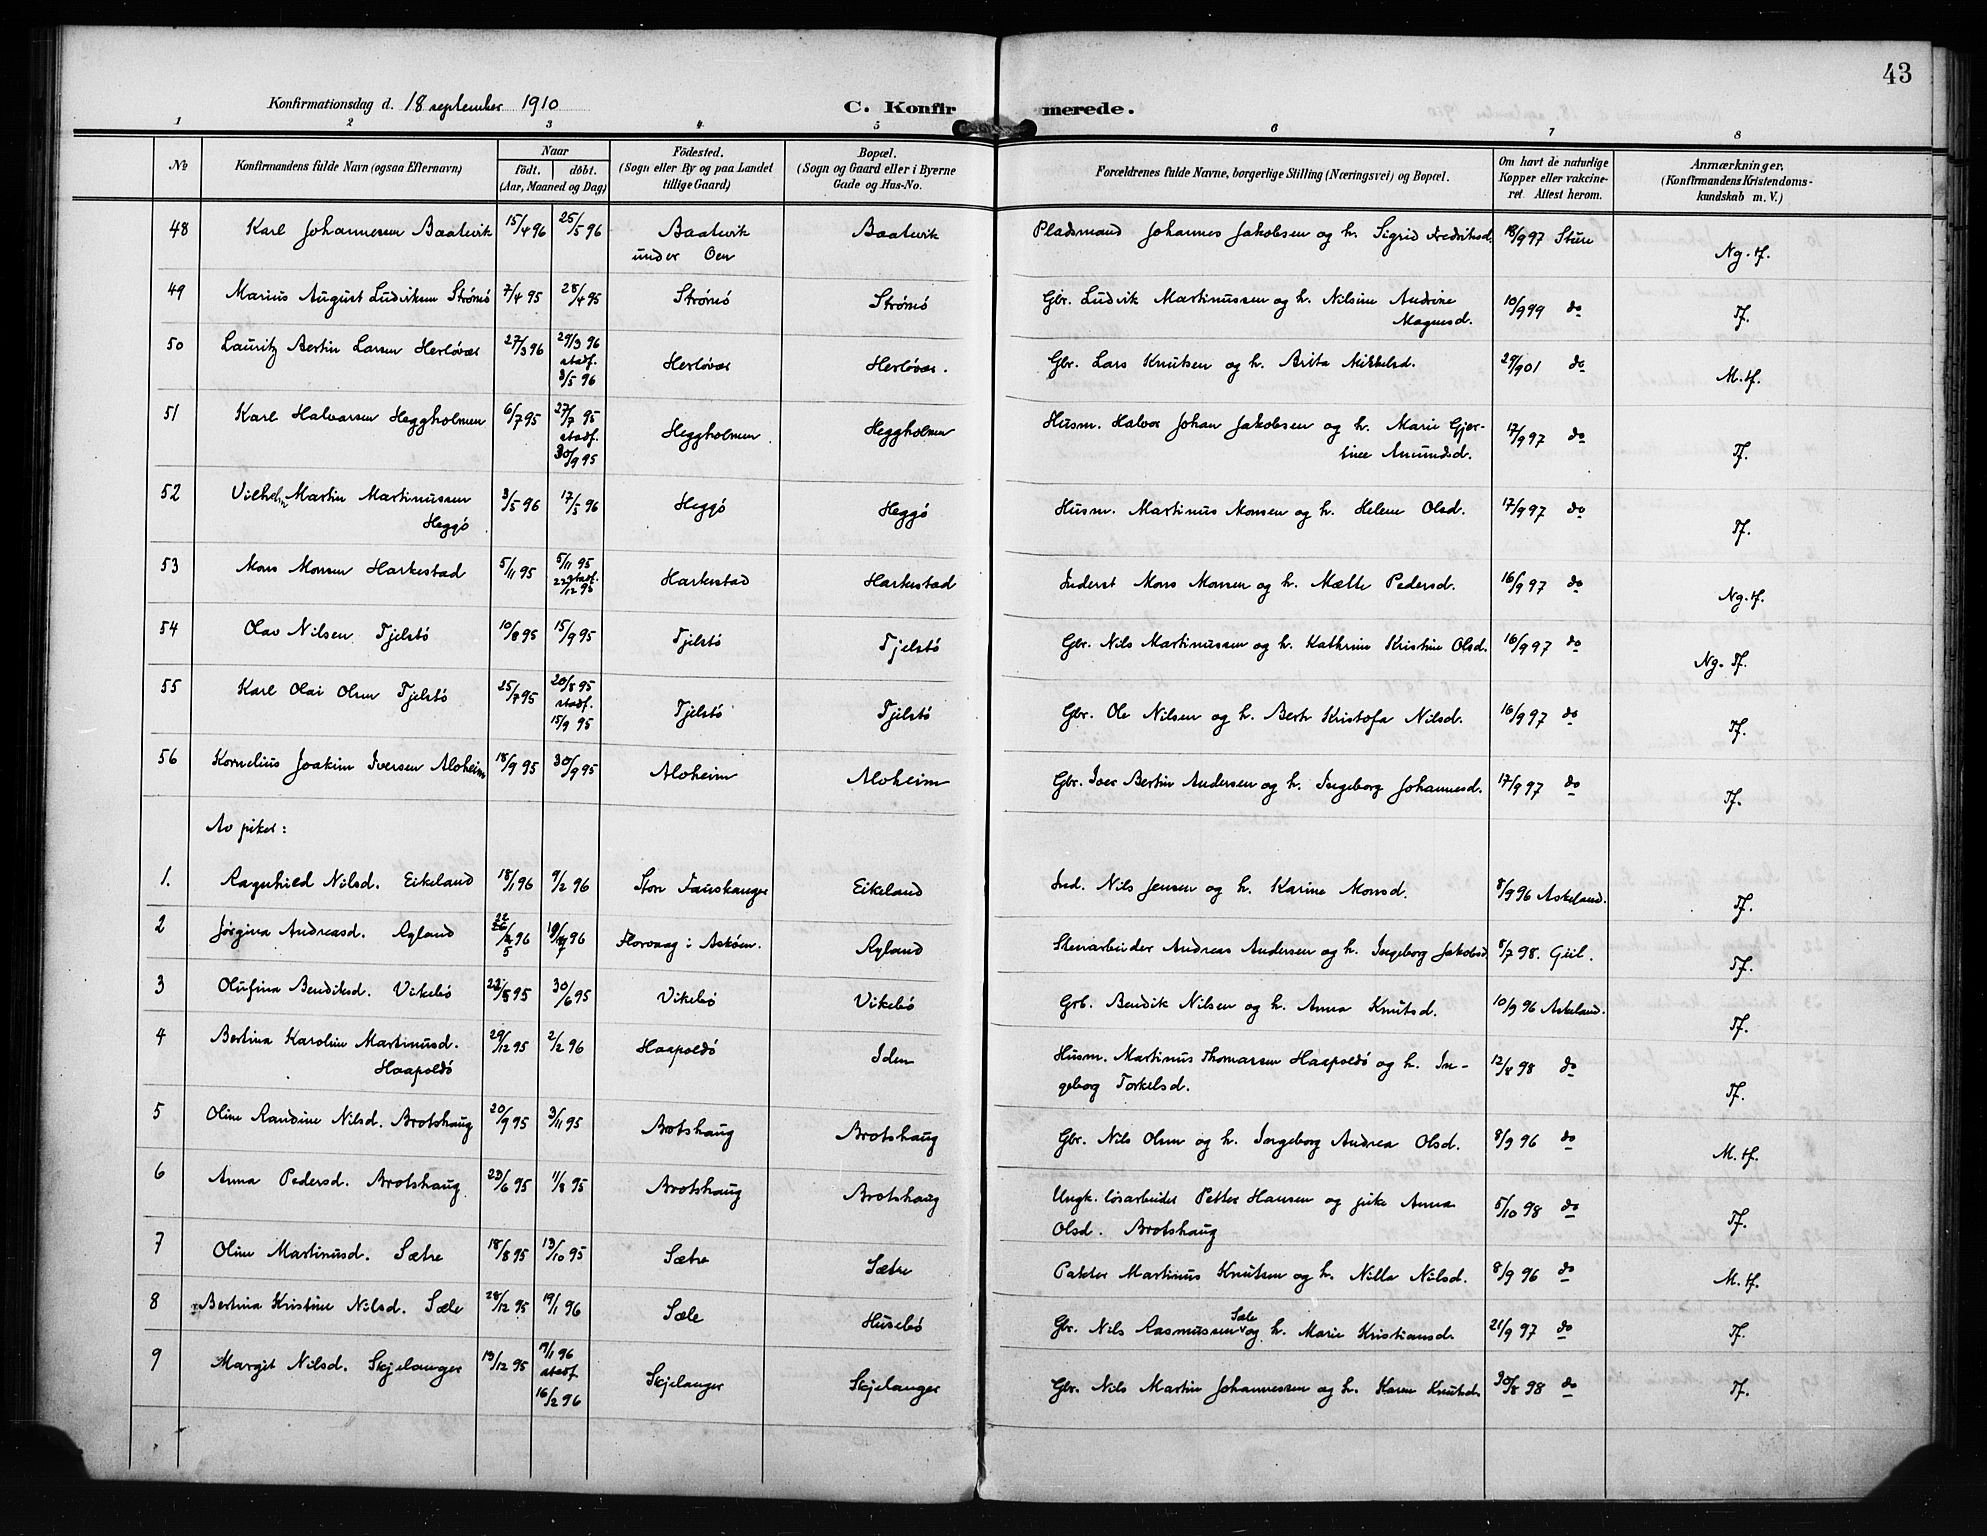 43
Konfirmationsdag d. 18 september 1910
C. Konfirmerede.
1 2 3 4 5 6 7 8
No
Konfirmandens fulde Navn (ogsaa Efternavn)
Naar
født. døbt.
(Aar, Maaned og Dag)
Födested.
(Sogn eller By og paa Landet
tillige Gaard)
Bopæl.
(Sogn og Gaard eller i Byerne
Gade og Hus-No.
Forældrenes fulde Navne, borgerlige Stilling (Næringsvei) og Bopæl.
Om havt de naturlige
Kopper eller vakcine-
ret. Attest herom.
Anmærkninger,
(Konfirmandens Kristendoms-
kundskab m. V.)
48 Karl Johannessen Baatevik 15/4 96 25/5 96 Baatevik Baatevik Pladsmand Johannes Jakobsen og h. Sigrid Fredriksd. 18/9 97 Sture Ng. tf.
under Oen
49 Marius August Ludviksen Strømø 7/4 95 28/4 95 Strømø Strømø Gbr. Ludvik Martinussen og h. Nilsine Andrine 10/9 99 do Tf.
Magnesd.
50 Lauritz Bertin Larsen Herløvær 27/3 96 29/3 96 Herløvær Herløvær. Gbr. Lars Knutsen og h. Brita Mikkelsd. 29/9 01 do M. tf.
stadf.
3/5 96
51 Karl Halvorsen Heggholmen 6/7 95 27/7 95 Heggholmen Heggholmen Husm. Halvor Johan Jakobsen og h. Marie Gjer- 17/9 97 do Tf.
stadf. tine Amundsd.
30/9 95
52 Vilhelm Martin Martinussen 3/5 96 17/5 96 Heggø Heggø Husm. Martinus Monsen og h. Helene Olsd. 17/9 97 do Tf.
Heggø
53 Mons Monsen Harkestad 5/11 95 5/11 95 Harkestad Harkestad Inderst Mons Monsen og h. Mætte Pedersd. 16/9 97 do Ng. tf.
stadf.
22/12 95
54 Olav Nilsen Tjelstø 10/8 95 15/9 95 Tjelstø Tjelstø Gbr. Nils Martinussen og h. Kathrine Kristine Olsd. 16/9 97 do Ng. Tf.
55 Karl Olai Olsen Tjelstø 25/7 95 20/8 95 Tjelstø Tjelstø Gbr. Ole Nilsen og h. Berte Kristofa Nilsd. 16/9 97 do Tf.
stadf.
15/9 95
56 Kornelius Joakim Iversen Aloheim 18/9 95 30/9 95 Aloheim Aloheim Gbr. Iver Bertin Andersen og h. Ingeborg Johannesd. 17/9 97 do Tf.
Av piker:
1. Ragnhild Nilsd. Eikeland 18/1 96 9/2 96 Store Fauskanger Eikeland Ind. Nils Jensen og h. Karine Monsd. 8/9 96 Askeland. Tf.
2 Jørgina Andreasd. Ryland Florvaag i Askøen. Ryland Stenarbeider Andreas Andersen og h. Ingeborg Jakobsd. 8/7 98. Tf.
3 Olufina Bendiksd. Vikebø 22/5 95 30/6 95 Vikebø Vikebø Grb. Bendik Nilsen og h. Anna Knutsd. 10/9 96 Askeland. Tf.
4 Bertina Karoline Martinusd. 29/12 95 2/2 96 Haapoldø Iden Husm. Martinus Thomassen Haapoldø og h. In- 12/8 98 do Tf.
Haapoldø geborg Torkelsd.
5 Oline Randine Nilsd. Brotshaug 20/9 95 3/11 95 Brotshaug Brotshaug Gbr. Nils Olsen og h. Ingeborg Andrea Olsd. 8/9 96 do M. tf.
6 Anna Pedersd. Brotshaug 23/6 95 11/8 95 Brotshaug Brotshaug Ungk. løsarbeider Petter Hansen og pike Anna 5/10 98 do Tf.
Olsd. Brotshaug
7 Oline Martinusd. Sætre 18/8 95 13/10 95 Sætre Sætre Pakter Martinus Knutsen og h. Nilla Nilsd. 8/9 96 do M. tf.
8 Bertina Kristine Nilsd. Sæle 28/12 95 19/1 96 Sæle Husebø Gbr. Nils Rasmussen Sæle og h. Marie Kristiansd. 21/9 97 do Tf.
9 Margit Nilsd. Skjelanger 19/12 95 19/1 96 Skjelanger Skjelanger Gbr. Nils Martin Johannessen og h. Karen Knutsd. 30/8 98 do Tf.
stadf
16/2 96